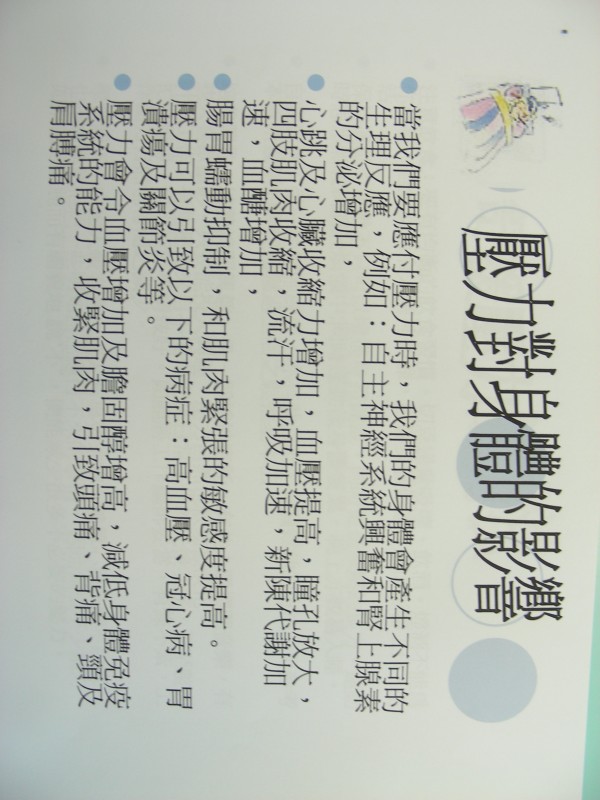 壓力對身體的影響
當我們要應付壓力時，我們的身體會產生不同的
生理反應，例如：自主神經系統興奮和腎上腺素
的分泌增加，
心跳及心臟收縮力增加，血壓提高，瞳孔放大，
四肢肌肉收縮，流汗，呼吸加速，新陳代謝加
速，血醣增加，
腸胃蠕動抑制，和肌肉緊張的敏感度提高。
壓力可以引致以下的病症：高血壓、冠心病、胃
潰瘍及關節炎等。
壓力會令血壓增加及膽固醇增高，減低身體免疫
系統的能力，收緊肌肉，引致頭痛、背痛、頸及
肩膊痛。